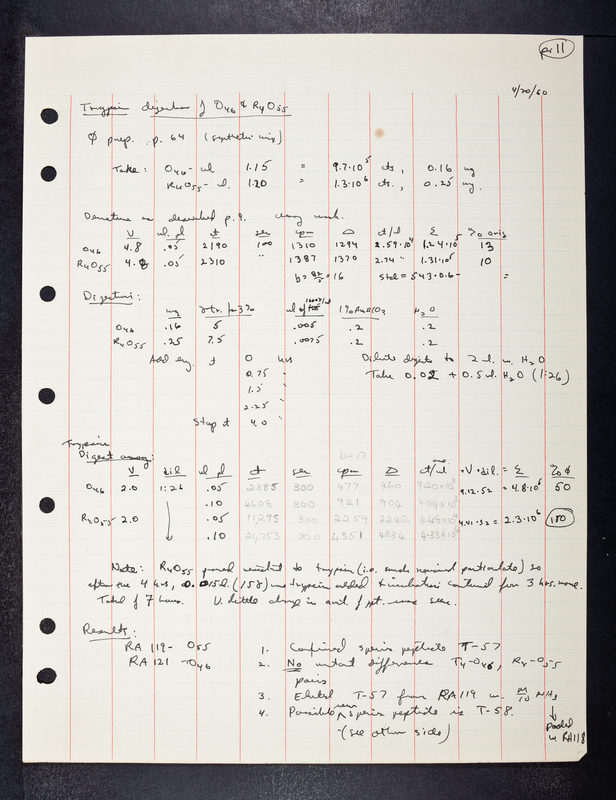 pr 11
4/20/60
Trypsin digestion of O46 & R4O55
Ø prep. p. 64 (synthetic mix)
Take: O46 - ul 1.15 = 9.7·10⁵ cts, 0.16 mg
R4O55 - ul. 1.20 = 1.3·10⁶ cts, 0.25 mg.
Denature as described p. 9. assay wash.
V ul. pl t sec cpm Δ ct/ul Σ % orig
O46 4.8 .05 2190 100 1310 1294 2.59·10⁴ 1.24·10⁵ 13
R4O55 4.8 .05 2310 " 1387 1370 2.74 " 1.31·10⁵ 10
b = 82/5 = 16 Std = 543·0.6 - =
Digestion:
mg 3% ul 1% AmHCO3 H2O
O46 .16 5 .005 .2 .2
R4O55 .25 7.5 .0075 .2 .2
Add enz. t 0 hrs Dilute digests to 2 ul. w. H2O
0.75 " Take 0.02 + 0.5 ul. H2O (1:26)
1.5 "
2.25 "
Stop at 4.0 "
Trypsin
Digest assay: b=17
V dil. ul pl t sec cpm Δ ct/ul ·V·dil. = Σ % Ø
O46 2.0 1:26 .05 2385 300 477 460 9.20×10³ 9.12·52 = 4.8·10⁵ 50
.10 4608 300 921 904 9.04×10³
R4O55 2.0 .05 11,295 300 2259 2242 4.48×10⁴ 4.41·52 = 2.3·10⁶ 180
.10 21,753 300 4351 4334 4.33×10⁴
Note: R4O55 proved resistant to trypsin (i.e. much remained particulate) so
after the 4 hrs, 0.015 ul. (15 γ) more trypsin added & incubation continued for 3 hrs. more.
Total of 7 hours. V. little change in amt of ppt. was seen.
Results:
RA 119 - O55
RA 121 - O46
1. Confirmed specific peptide T-57
2. No mutant difference T4-O46, R4-O55
pairs
3. Eluted T-57 from RA 119 w. M/10 NH3
↓
pooled
w. RA118
4. Possible new specific peptide is T-58.
(see other side)